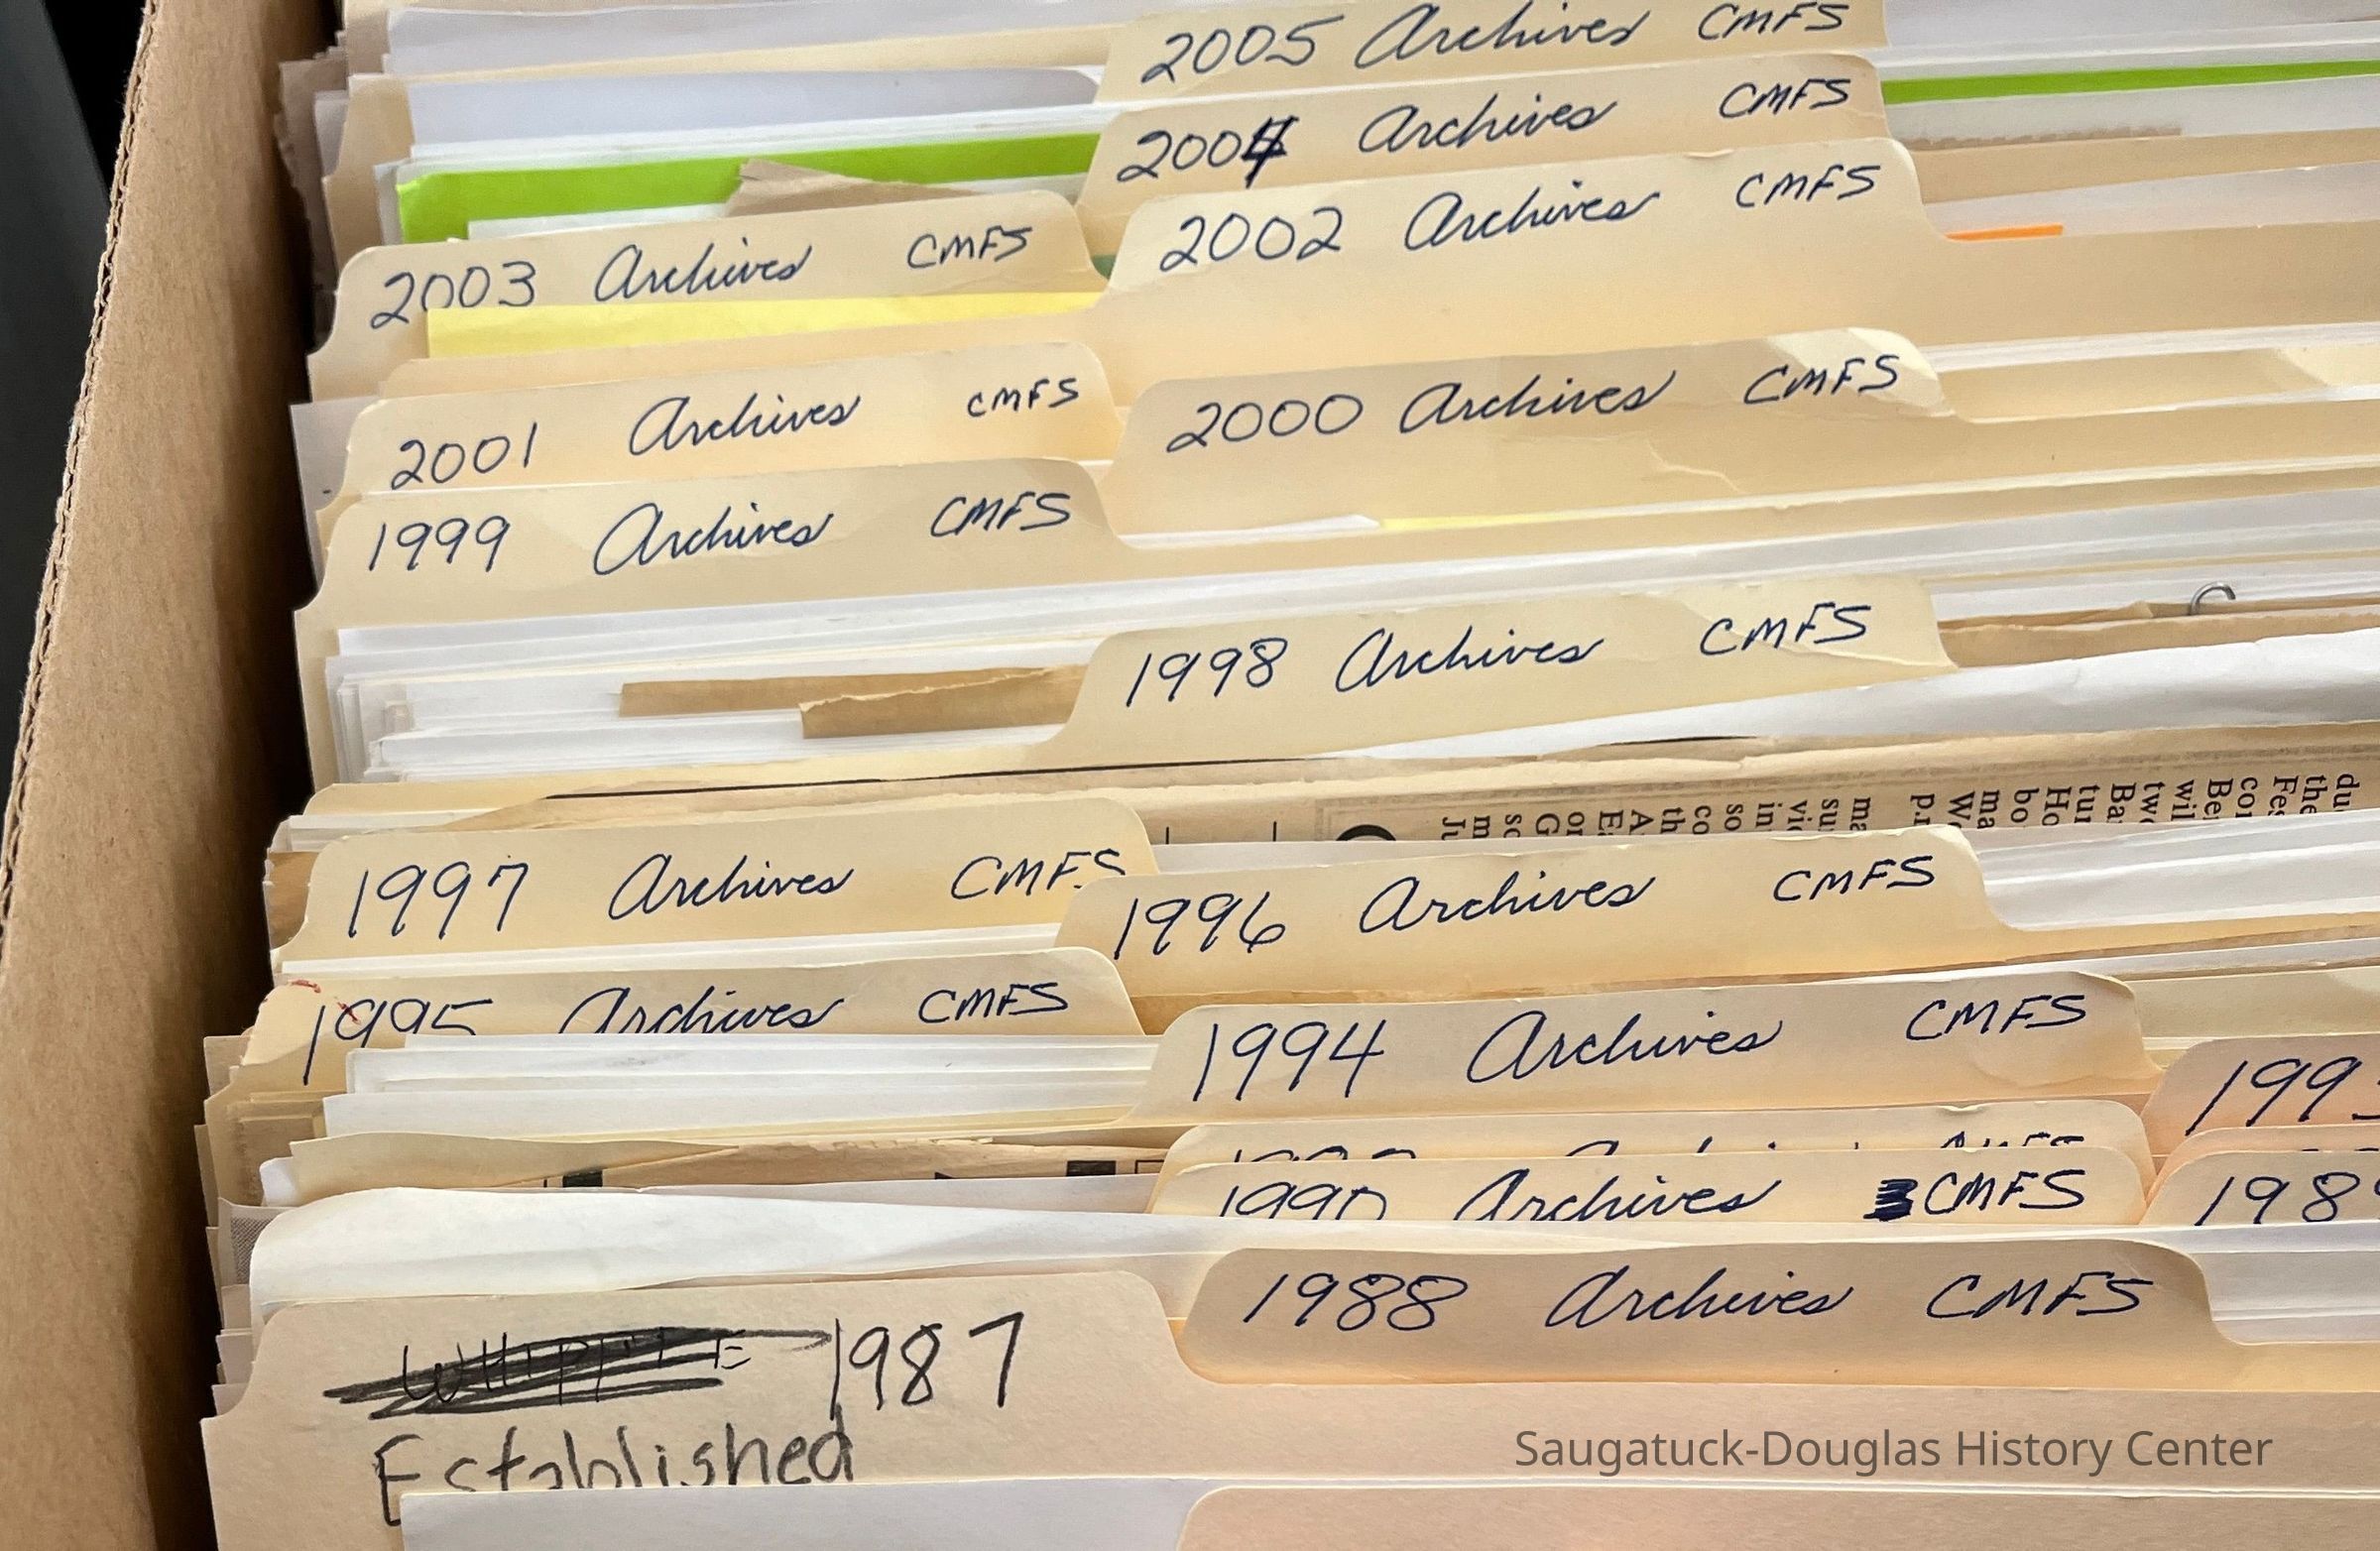 2005 Archives CMFS
2004 Archives CMFS
2002 Archives CMFS
2003 Archives CMFS
2001 Archives CMFS
2000 Archives CMFS
1999 Archives CMFS
1998 Archives CMFS
1997 Archives CMFS
1996 Archives CMFS
1995 Archives CMFS
1994 Archives CMFS
1990 Archives CMFS
1988 Archives CMFS
1987
Established
Saugatuck-Douglas History Center